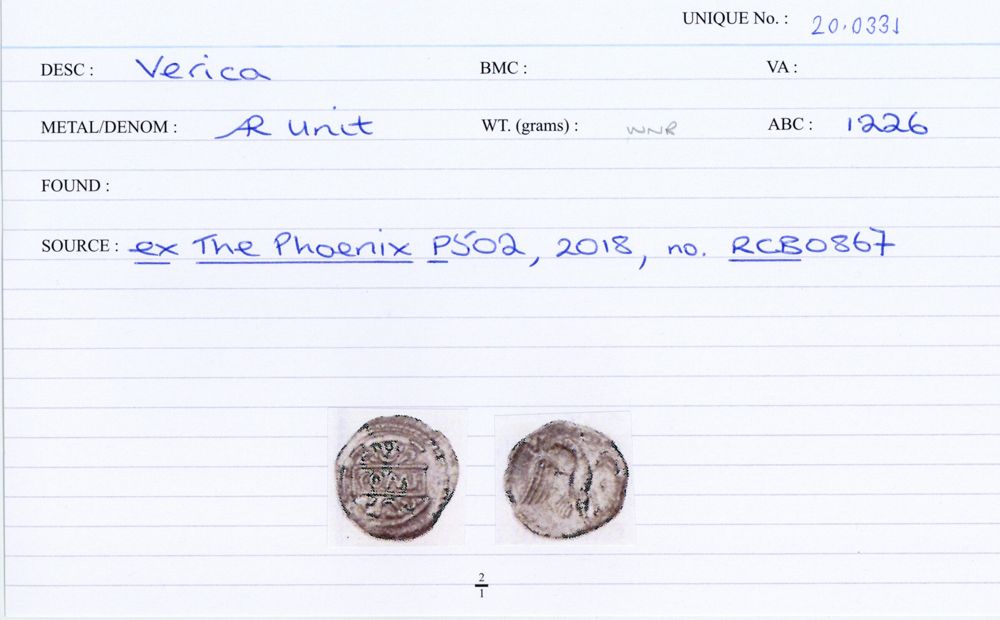 UNIQUE No. : 20.0331
DESC : Verica BMC : VA :
METAL/DENOM : AR Unit WT. (grams) : WNR ABC : 1226
FOUND :
SOURCE : ex The Phoenix P502, 2018, no. RCB0867
2
1